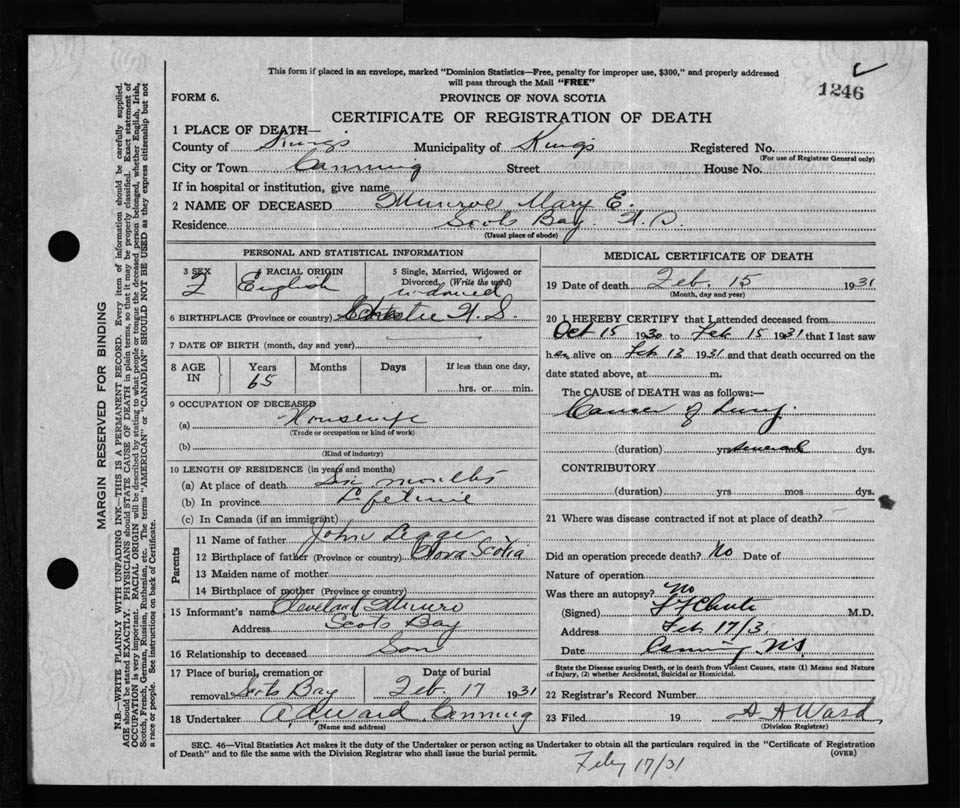 This form if placed in an envelope, marked "Dominion Statistics—Free, penalty for improper use, $300," and properly addressed
will pass through the Mail "FREE"
1246
FORM 6.
PROVINCE OF NOVA SCOTIA
CERTIFICATE OF REGISTRATION OF DEATH
1 PLACE OF DEATH—
County of Kings Municipality of Kings Registered No.
(For use of Registrar General only)
City or Town Canning Street House No.
If in hospital or institution, give name
2 NAME OF DECEASED Munroe Mary E.
Residence Scots Bay. N. S.
(Usual place of abode)
PERSONAL AND STATISTICAL INFORMATION
3 SEX F
4 RACIAL ORIGIN English
5 Single, Married, Widowed or Divorced, (Write the word) widowed
6 BIRTHPLACE (Province or country) N. S.
7 DATE OF BIRTH (month, day and year)
8 AGE IN Years 65 Months Days If less than one day, hrs. or min.
9 OCCUPATION OF DECEASED
(a) Housewife
(Trade or occupation or kind of work)
(b)
(Kind of industry)
10 LENGTH OF RESIDENCE (in years and months)
(a) At place of death Six months
(b) In province Lifetime
(c) In Canada (if an immigrant)
Parents
11 Name of father John Legge
12 Birthplace of father (Province or country) Nova Scotia
13 Maiden name of mother
14 Birthplace of mother (Province or country)
15 Informant's name Cleveland Munro
Address Scots Bay
16 Relationship to deceased Son
17 Place of burial, cremation or removal Scots Bay
Date of burial Feb. 17 1931
18 Undertaker A. A. Ward, Canning
(Name and address)
MEDICAL CERTIFICATE OF DEATH
19 Date of death Feb. 15 1931
(Month, day and year)
20 I HEREBY CERTIFY that I attended deceased from
Oct 15 1930 to Feb 15 1931 that I last saw
her alive on Feb 13 1931 and that death occurred on the
date stated above, at m.
The CAUSE of DEATH was as follows:—
Cancer of Lung.
(duration) yrs several dys.
CONTRIBUTORY
(duration) yrs mos dys.
21 Where was disease contracted if not at place of death?
Did an operation precede death? No Date of
Nature of operation
Was there an autopsy? No
(Signed) Chute M.D.
Address Feb 17/31
Date Canning, N.S.
State the Disease causing Death, or in death from Violent Causes, state (1) Means and Nature
of Injury, (2) whether Accidental, Suicidal or Homicidal.
22 Registrar's Record Number
23 Filed 19 A A Ward
(Division Registrar)
SEC. 46—Vital Statistics Act makes it the duty of the Undertaker or person acting as Undertaker to obtain all the particulars required in the "Certificate of Registration
of Death" and to file the same with the Division Registrar who shall issue the burial permit.
(OVER)
Feby 17/31
MARGIN RESERVED FOR BINDING
N.B.—WRITE PLAINLY WITH UNFADING INK—THIS IS A PERMANENT RECORD. Every item of information should be carefully supplied.
AGE should be stated EXACTLY. PHYSICIANS should STATE CAUSE OF DEATH in plain terms, so that it may be properly classified. Exact statement of
OCCUPATION is very important. RACIAL ORIGIN will be described by stating to what people or tongue the deceased person belonged, whether English, Irish,
Scotch, French, German, Russian, Ruthenian, etc. The terms "AMERICAN" or "CANADIAN" SHOULD NOT BE USED as they express citizenship but not
a race or people. See instructions on back of Certificate.